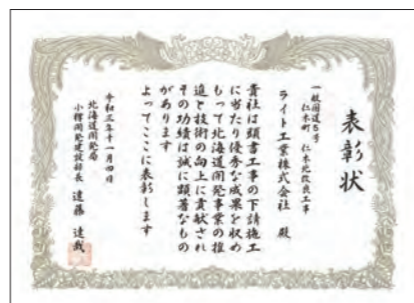 表彰状
一般国道5号
仁木町 仁木地改良工事
ライト工業株式会社 殿
貴社は頭書工事の下請施工
に当たり優秀な成果を収め
もって北海道開発事業の推
進と技術の向上に貢献され
その功績は誠に顕著なもの
があります
よってここに表彰します
令和三年十一月四日
北海道開発局
小樽開発建設部長 遠藤 達哉